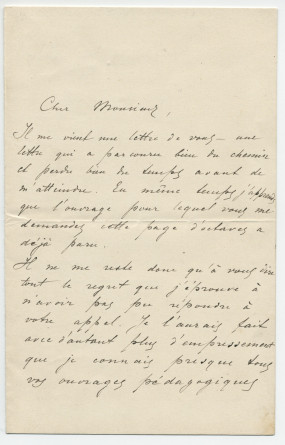 Cher Monsieur,
Il me vient une lettre de vous – une
lettre qui a parcouru bien du chemin
et perdu bien du temps avant de
m'atteindre. En même temps j'apprends
que l'ouvrage pour lequel vous me
demandez cette page d'octaves a
déjà paru.
Il ne me reste donc qu'à vous dire
tout le regret que j'éprouve à
n'avoir pas pu répondre à
votre appel. Je l'aurais fait
avec d'autant plus d'empressement
que je connais presque tous
vos ouvrages pédagogiques